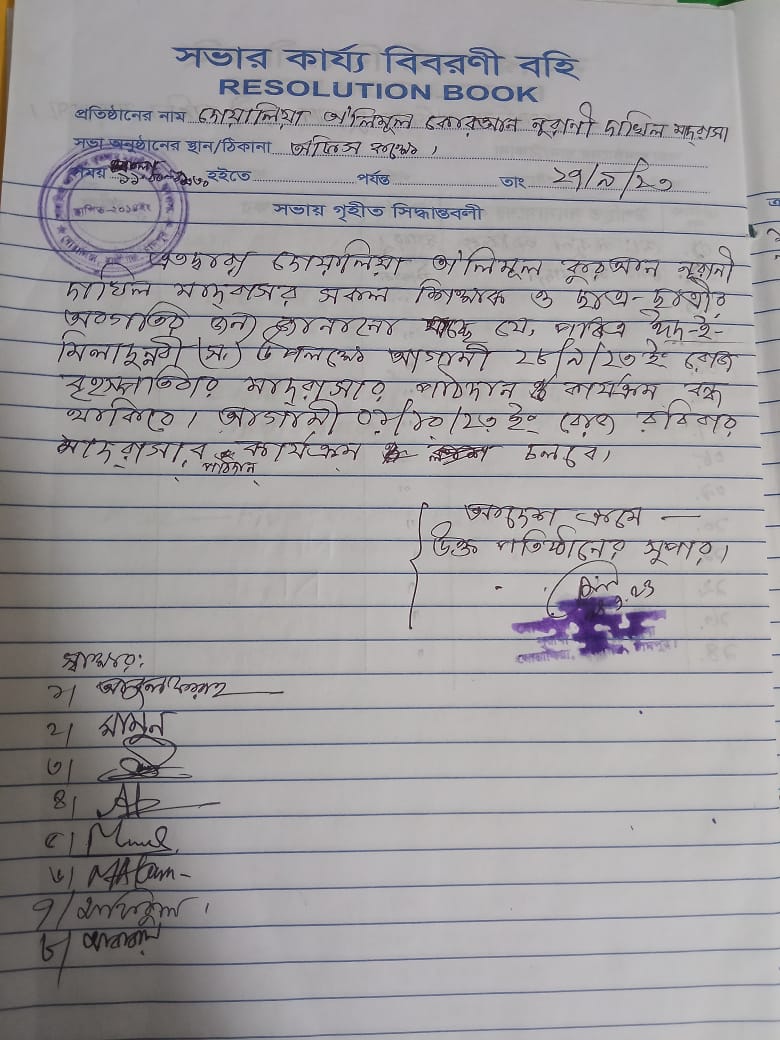 সভার কার্য্য বিবরণী বহি
RESOLUTION BOOK
প্রতিষ্ঠানের নাম দোয়ালিয়া তা'লিমুল কোরআন নূরানী দাখিল মাদ্রাসা
সভা অনুষ্ঠানের স্থান/ঠিকানা অফিস কক্ষে।
সময় হইতে পর্যন্ত তাং ২৭/৯/২৩
স্থাপিত-২০১৪ইং
সভায় গৃহীত সিদ্ধান্তবলী
এতদ্বারা দোয়ালিয়া তা'লিমুল কুরআন নূরানী
দাখিল মাদ্রাসার সকল শিক্ষক ও ছাত্র-ছাত্রীর
অবগতির জন্য জানানো যাচ্ছে যে, পবিত্র ঈদ-ই-
মিলাদুন্নবী (স.) উপলক্ষে আগামী ২৮/৯/২৩ ইং রোজ
বৃহস্পতিবার মাদ্রাসার পাঠদান কার্যক্রম বন্ধ
থাকিবে। আগামী ০১/১০/২৩ ইং রোজ রবিবার
মাদ্রাসার পাঠদান কার্যক্রম চলবে।
আদেশ ক্রমে —
উক্ত প্রতিষ্ঠানের সুপার।
স্বাক্ষর:
১।
২। মামুন
৩।
৪।
৫।
৬।
৭।
৮।